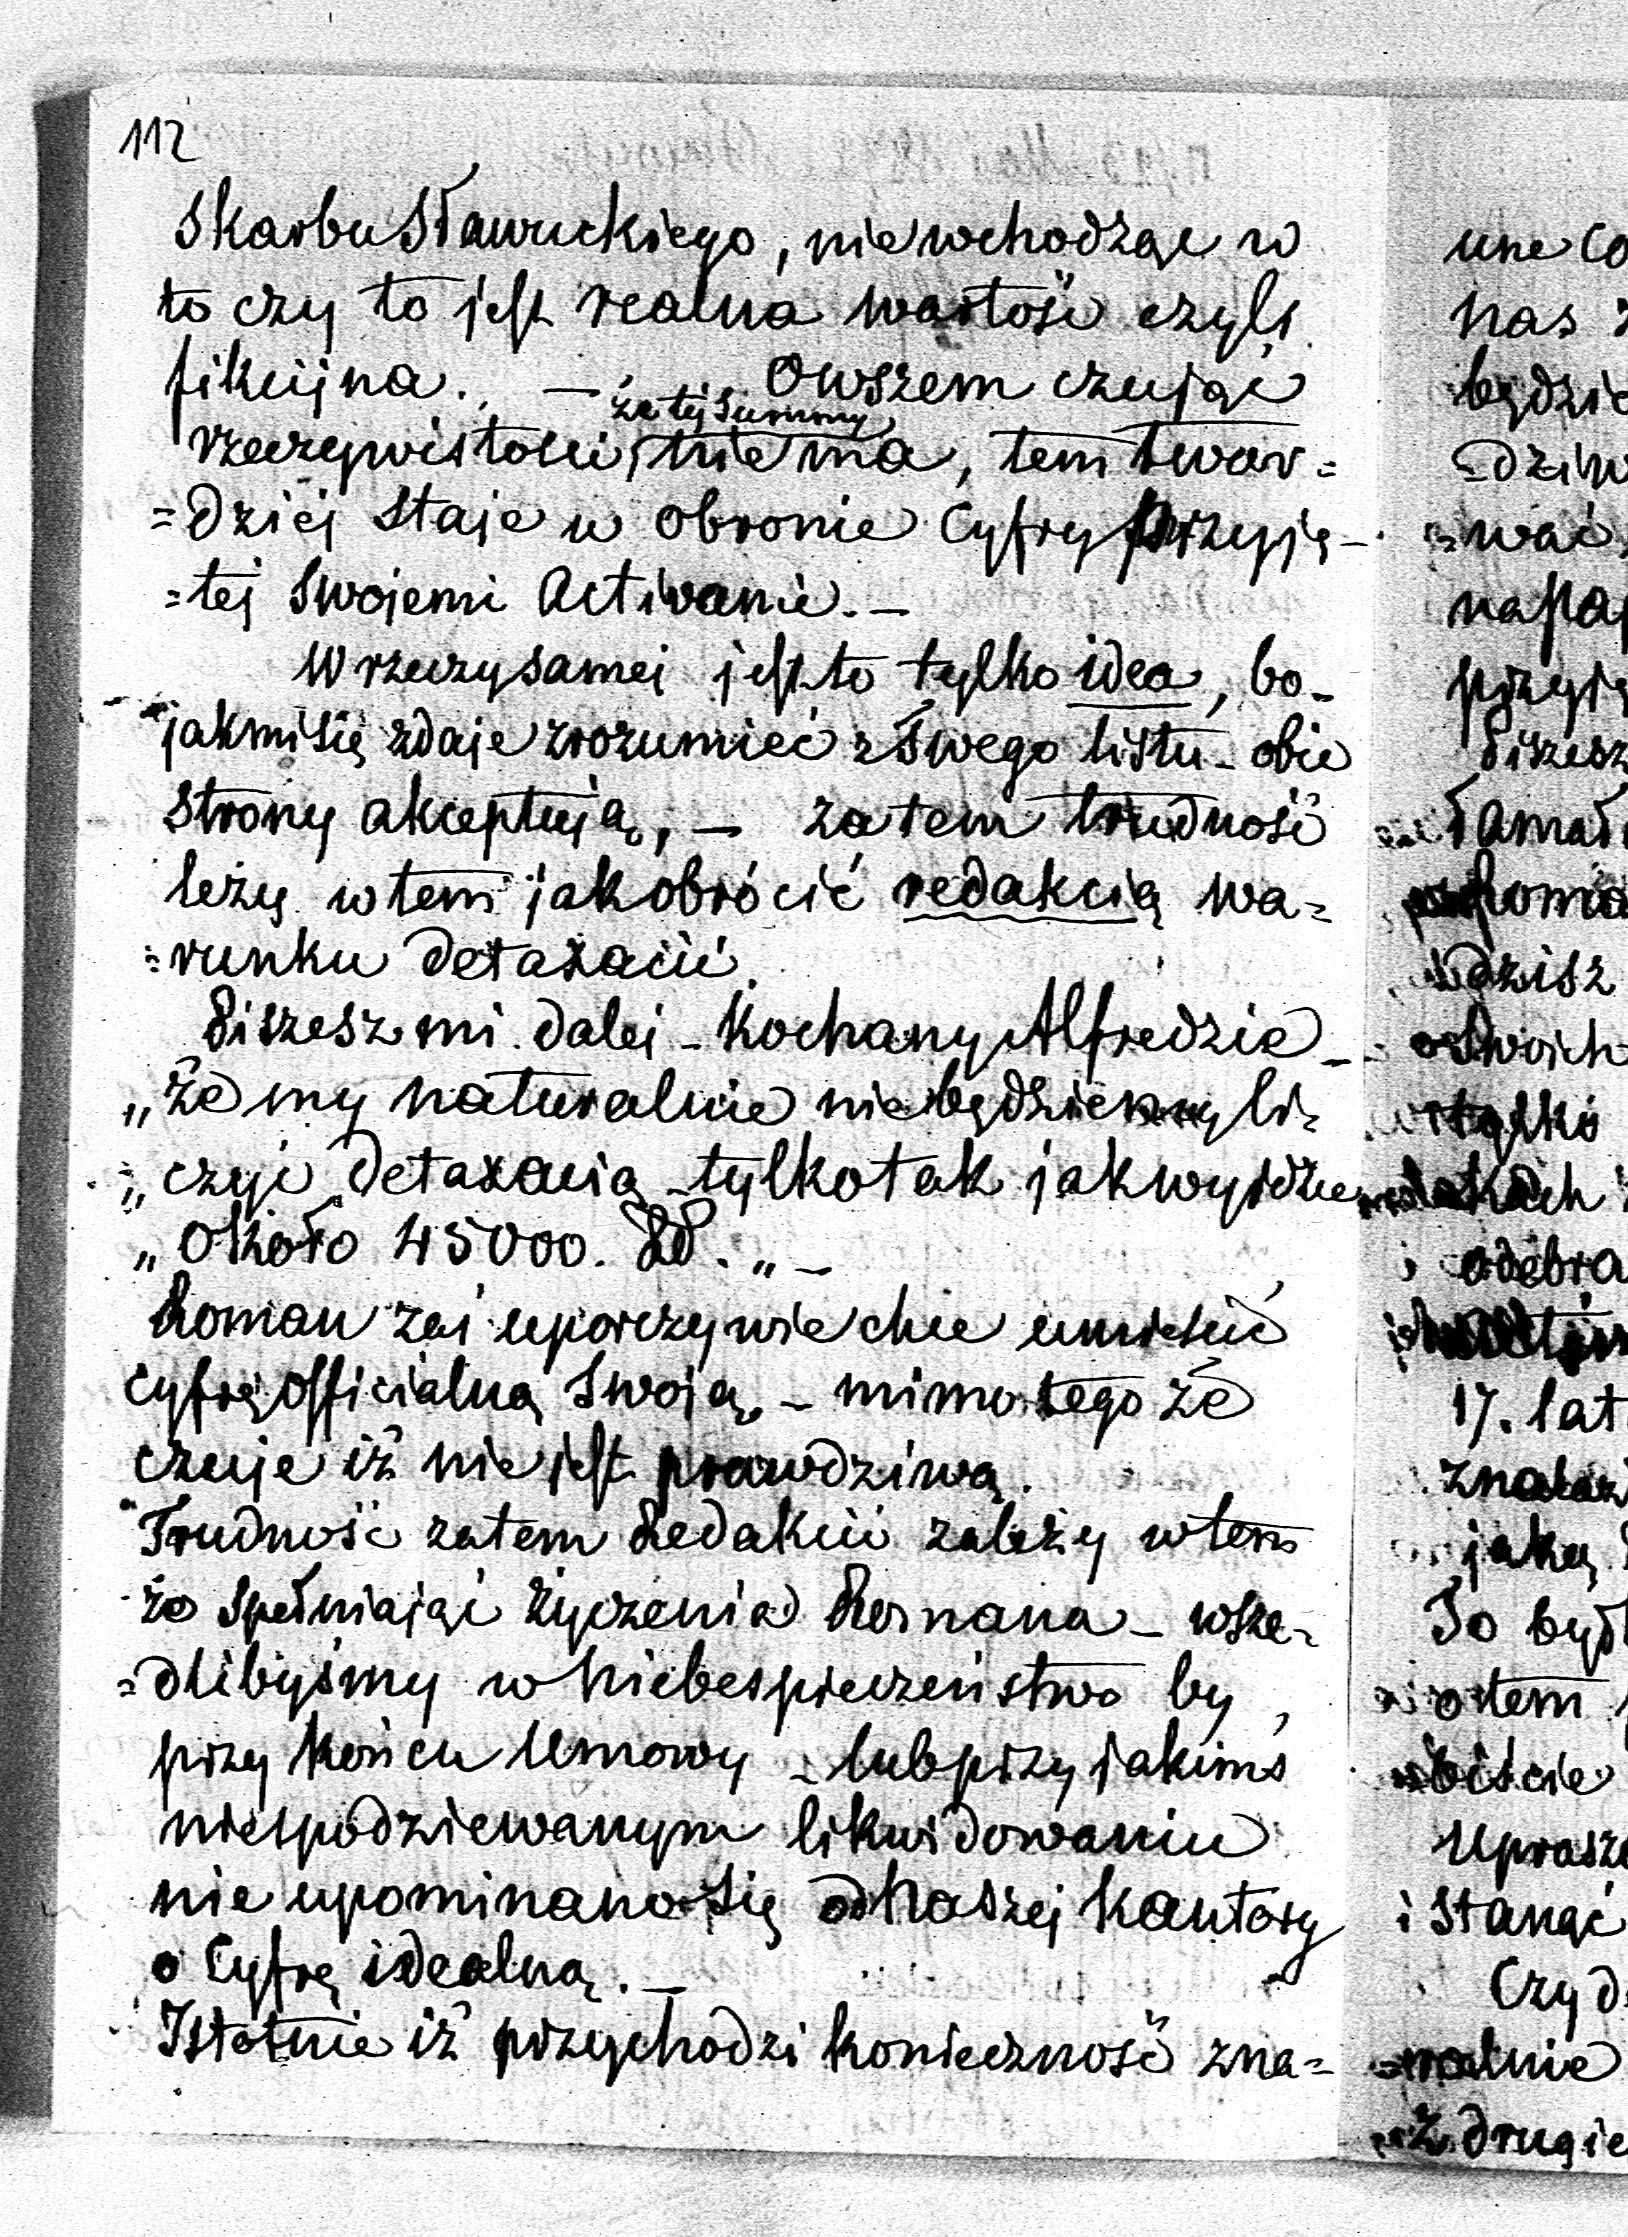 112
Skarbu Sławuckiego, nie wchodząc w
to czy to jest realna wartość czyli
fikcijna. — Owszem czując
że tej summy
rzeczywistości nie ma, tem twar=
=dziej staje w obronie Cyfry przyję=
=tej swojemi Activami. —
W rzeczy samej jest to tylko idea, bo-
jak mi się zdaje zrozumieć z Twego listu - obie
strony akceptują, — zatem trudność
leży w tem jak obrócić redakcią wa=
=runku detaxacii.
Piszesz mi dalej - Kochany Alfredzie —
„że my naturalnie nie będziemy li=
„czyć detaxacią - tylko tak jak wyjdzie
„około 45000. „ —
Roman zaś uporczywie chce umieścić
cyfrę officialną swoją, - mimo tego że
czuje iż nie jest prawdziwą.
Trudność zatem Redakcii zależy w tem
że spełniając życzenia Romana - wsze=
=dlibyśmy w niebespieczeństwo by,
przy końcu Umowy - lub przy jakimś
niespodziewanym likwidowaniu
nie upominano się od naszej Kantory
o Cyfrę idealną. —
Istotnie iż przychodzi konieczność zna=
une co
nas
będzie
=dziw
=wać
napa
przyję
Piszesz
łamał
dzisz
o Swoich
tylko
i odebra
17. lat
znalaz
jaką
To był
o tem
=biście
Uprasza
i stanąć
Czy d
=nalnie
Z drugie